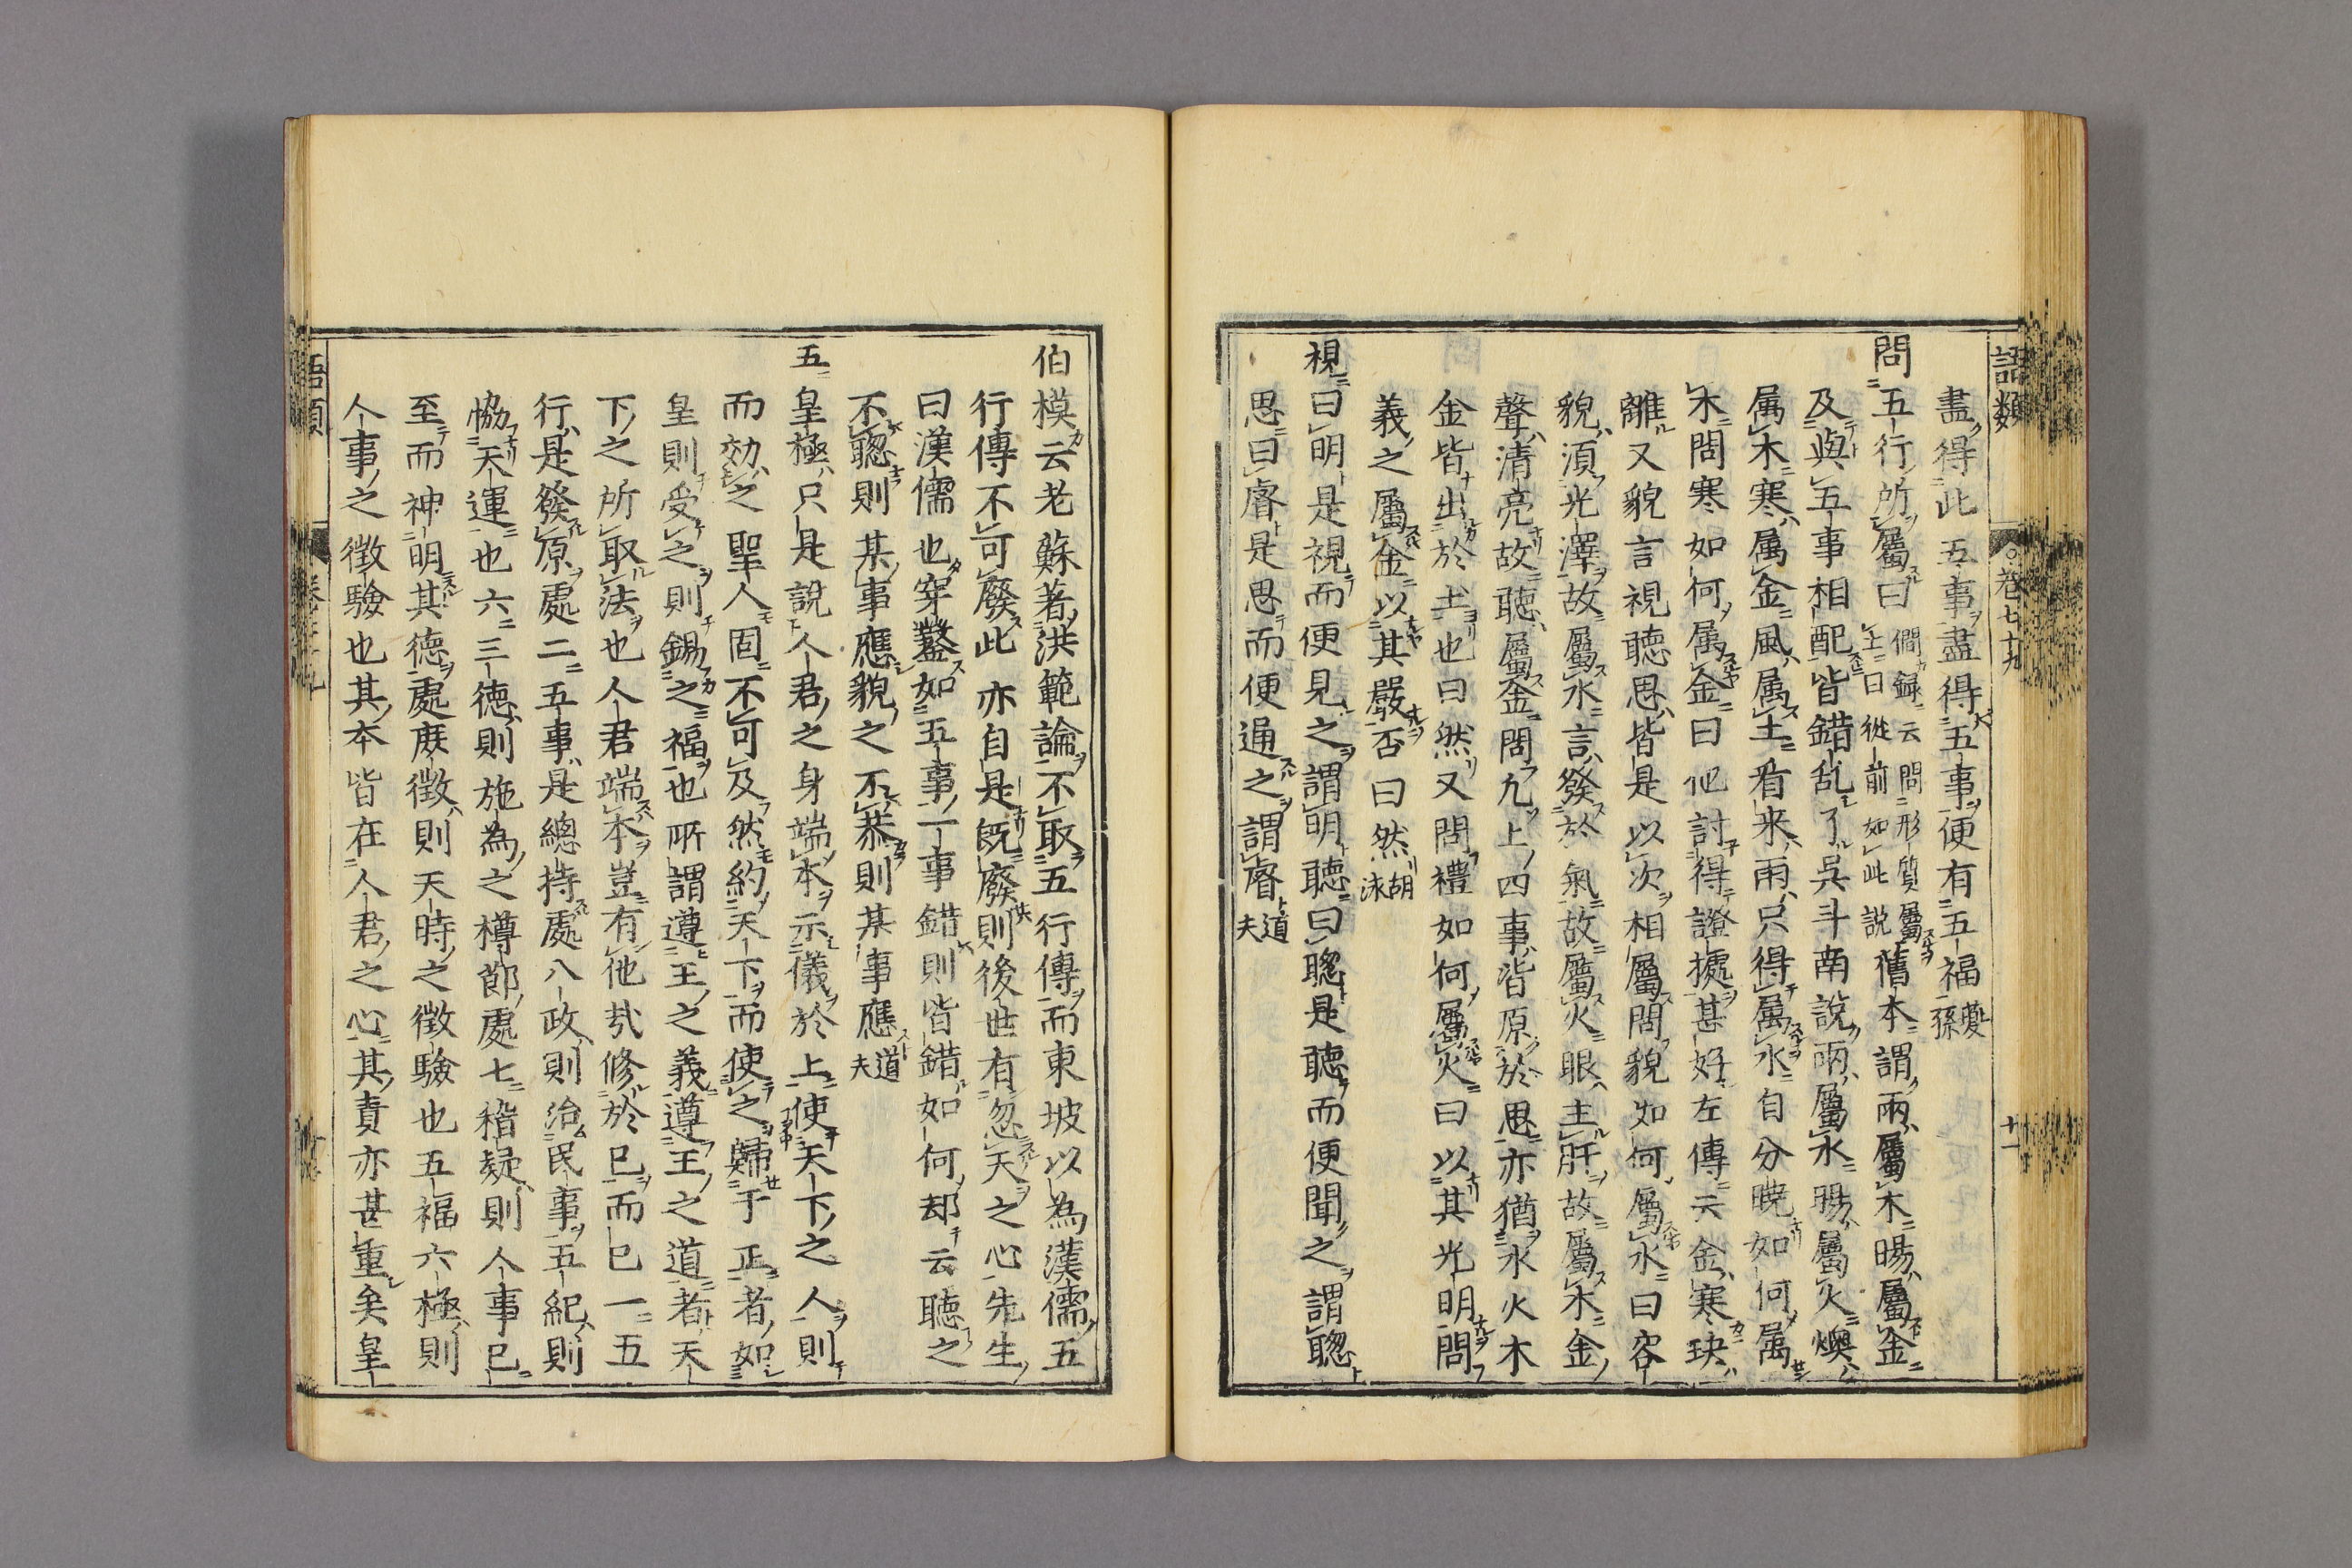 語類 卷七十九 十一
盡得此五事盡得五事便有五福夔孫
問五行所屬曰僩録云問形質屬上曰從前如此說舊本謂雨屬木暘屬金
及與五事相配皆錯乱了吳斗南說雨屬水暘屬火燠
属木寒属金風属土看来雨只得属水自分曉如何属
木問寒如何属金曰他討得證據甚好左傳云金寒玦
離又貌言視聽思皆是以次相屬問貌如何屬水曰容
貌須光澤故屬水言發於氣故屬火眼主肝故屬木金
聲清亮故聽屬金問九上四事皆原於思亦猶水火木
金皆出於土也曰然又問禮如何屬火曰以其光明問
義之屬金以其嚴否曰然胡泳
視曰明是視而便見之謂明聽曰聰是聽而便聞之謂聰
思曰睿是思而便通之謂睿道夫
伯模云老蘇著洪範論不取五行傳而東坡以為漢儒五
行傳不可廢此亦自是既廢則後世有忽天之心先生
曰漢儒也穿鑿如五事一事錯則皆錯如何却云聽之
不聰則某事應貌之不恭則某事應道夫
五皇極只是說人君之身端本示儀於上使天下之人則
而効之聖人固不可及然約天下而使之歸于正者如
皇則受之則錫之福也所謂遵王之義遵王之道者天
下之所取法也人君端本豈有他哉修於己而已一五
行是發原處二五事是總持處八政則治民事五紀則
恊天運也六三徳則施為之樽節處七稽疑則人事已
至而神明其德處庶徵則天時之徵驗也五福六極則
人事之徵驗也其本皆在人君之心其責亦甚重矣皇